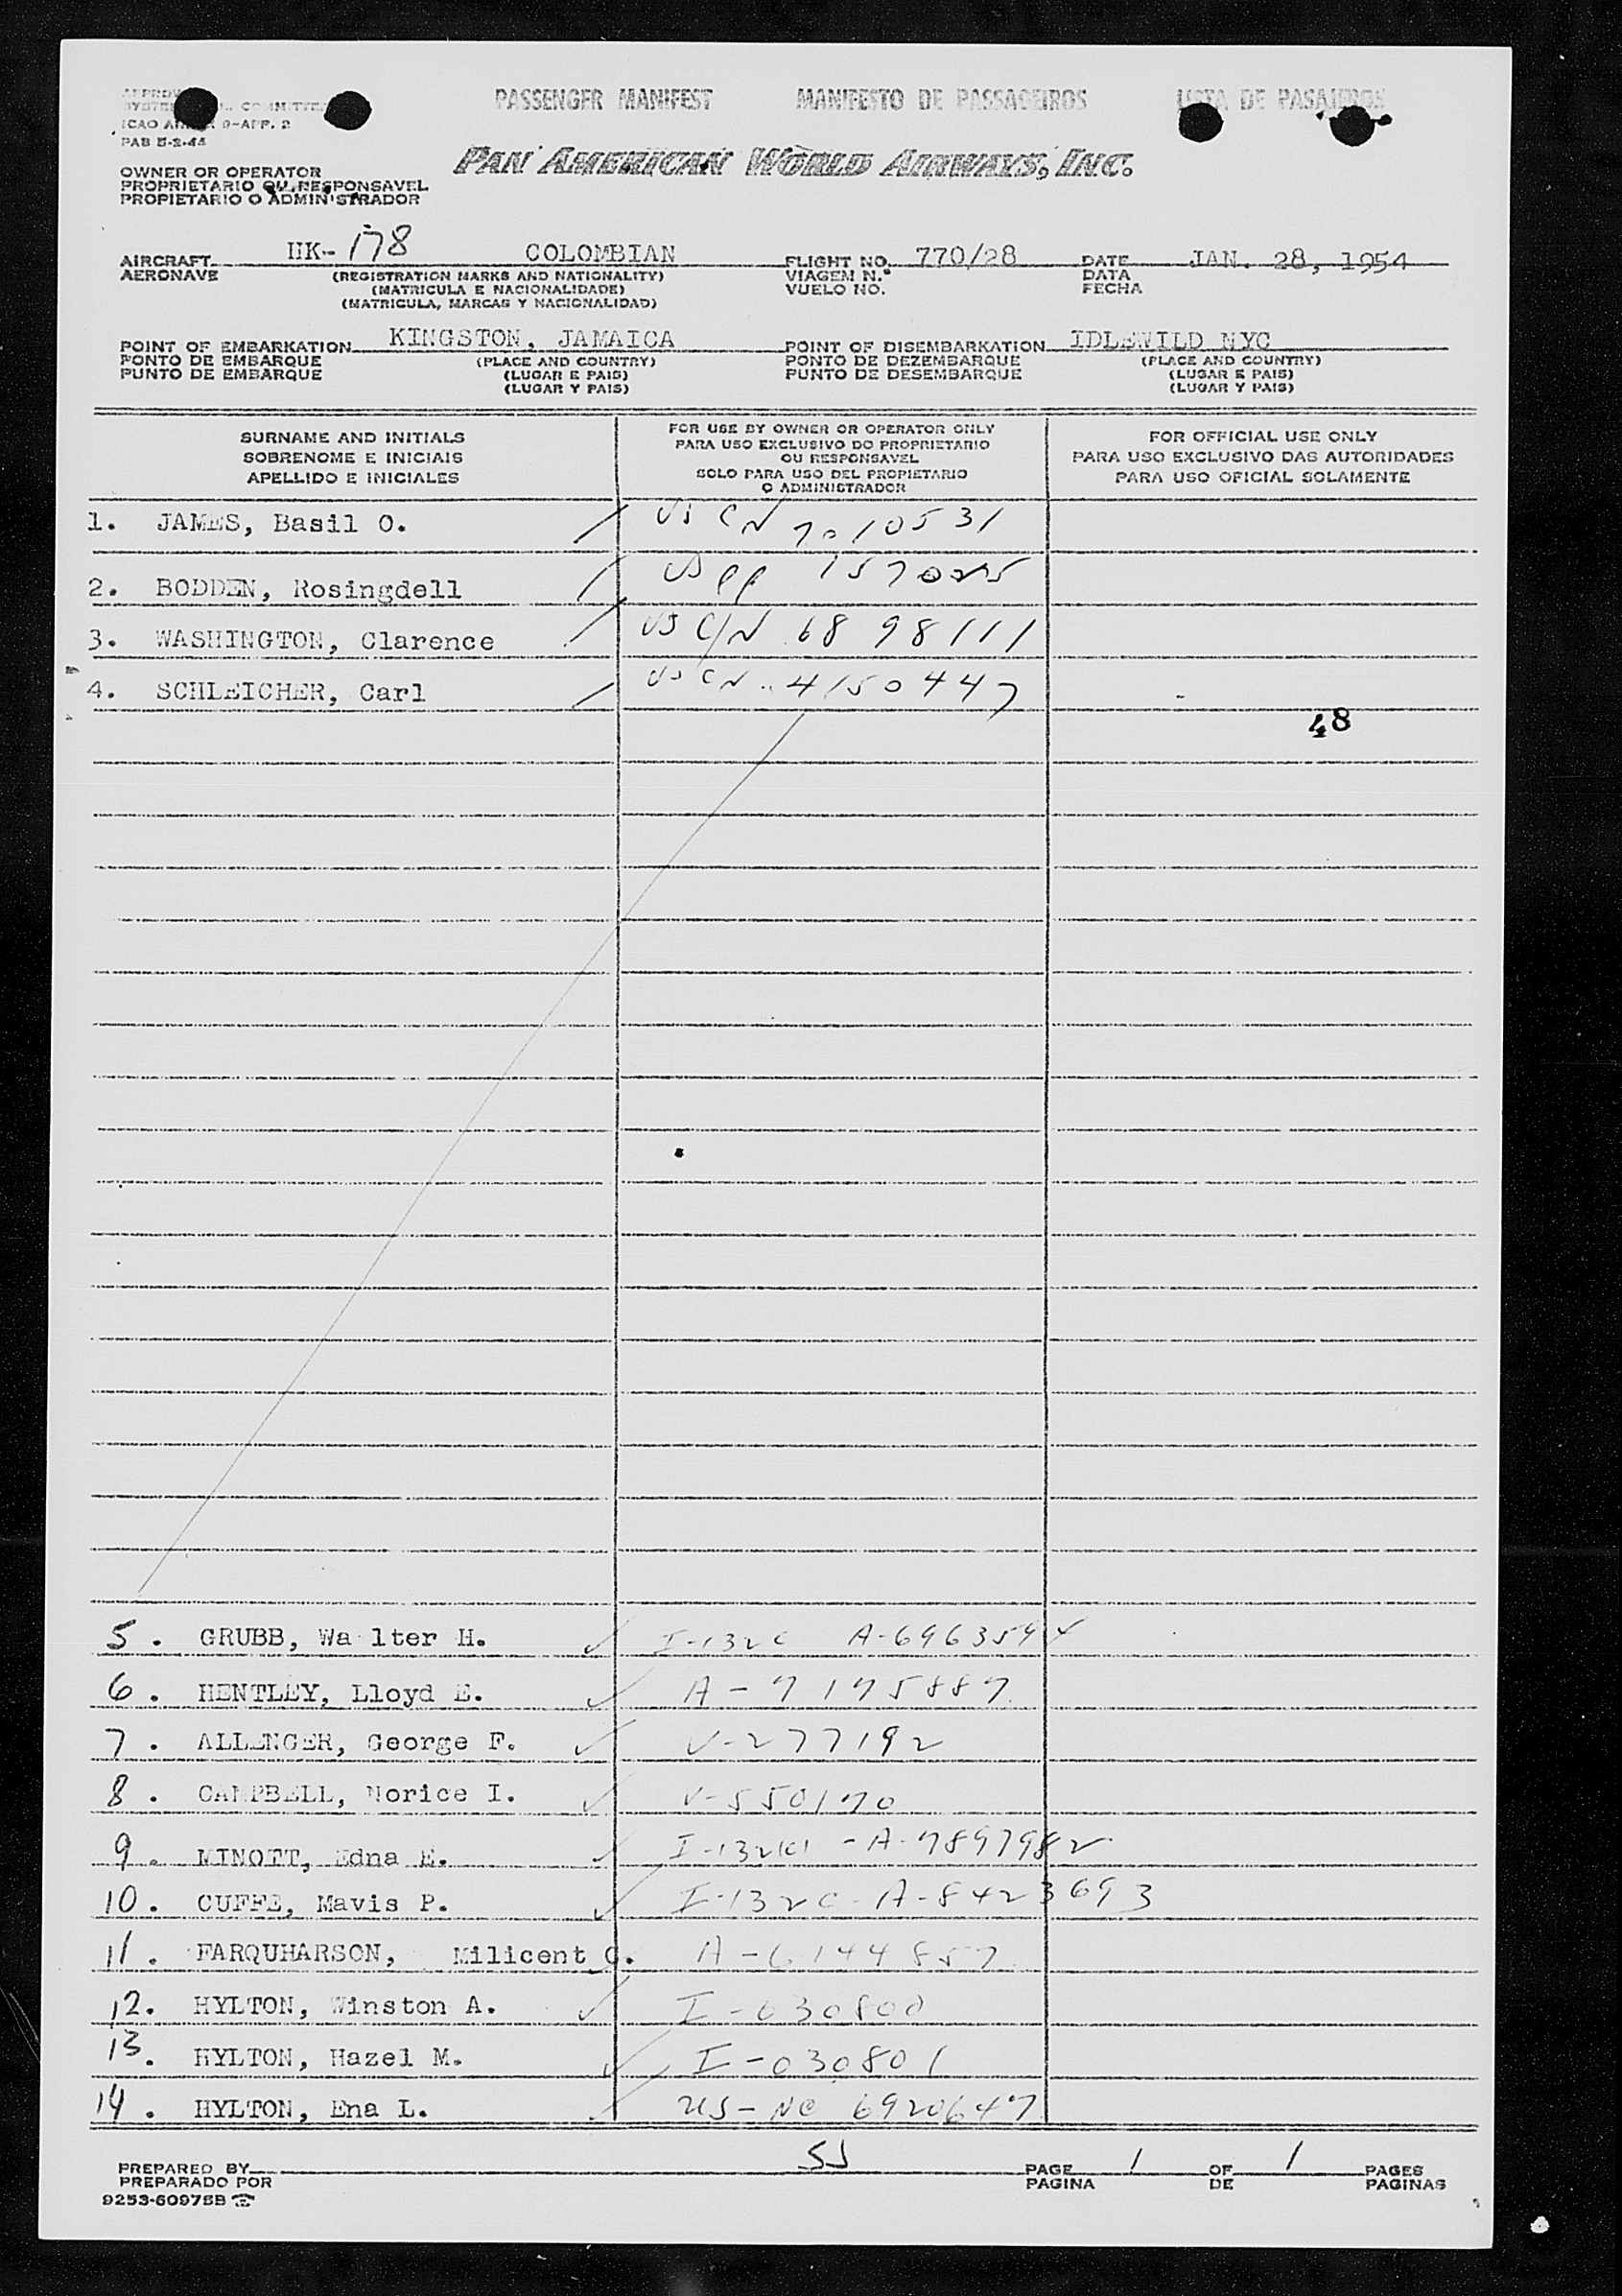 PASSENGER MANIFEST MANIFESTO DE PASSAGEIROS LISTA DE PASAJEROS
ICAO 9-APP. 2
PAB 5-2-44
PAN AMERICAN WORLD AIRWAYS, INC.
OWNER OR OPERATOR
PROPRIETARIO OU RESPONSAVEL
PROPIETARIO O ADMINISTRADOR
AIRCRAFT HK-178 COLOMBIAN FLIGHT NO. 770/28 DATE JAN. 28, 1954
AERONAVE (REGISTRATION MARKS AND NATIONALITY) VIAGEM N.° DATA
(MATRICULA E NACIONALIDADE) VUELO NO. FECHA
(MATRICULA, MARCAS Y NACIONALIDAD)
POINT OF EMBARKATION KINGSTON, JAMAICA POINT OF DISEMBARKATION IDLEWILD NYC
PONTO DE EMBARQUE (PLACE AND COUNTRY) PONTO DE DEZEMBARQUE (PLACE AND COUNTRY)
PUNTO DE EMBARQUE (LUGAR E PAIS) PUNTO DE DESEMBARQUE (LUGAR E PAIS)
(LUGAR Y PAIS) (LUGAR Y PAIS)
SURNAME AND INITIALS
SOBRENOME E INICIAIS
APELLIDO E INICIALES
FOR USE BY OWNER OR OPERATOR ONLY
PARA USO EXCLUSIVO DO PROPRIETARIO
OU RESPONSAVEL
SOLO PARA USO DEL PROPIETARIO
O ADMINISTRADOR
FOR OFFICIAL USE ONLY
PARA USO EXCLUSIVO DAS AUTORIDADES
PARA USO OFICIAL SOLAMENTE
1. JAMES, Basil O. US CN 7010531
2. BODDEN, Rosingdell US PP
3. WASHINGTON, Clarence US C/N 6898111
4. SCHLEICHER, Carl US CN 4150447
48
5. GRUBB, Walter H. I-132C A-6963594
6. HENTLEY, Lloyd E. A-7175887
7. ALLENGER, George F. V-277192
8. CAMPBELL, Norice I. V-550170
9. MINOTT, Edna E. A-7897982
10. CUFFE, Mavis P. I-132C-A-8423693
11. FARQUHARSON, Milicent G. A-6144857
12. HYLTON, Winston A. I-030800
13. HYLTON, Hazel M. I-030801
14. HYLTON, Ena L. US-NC 6920647
PREPARED BY SJ PAGE 1 OF 1 PAGES
PREPARADO POR PAGINA DE PAGINAS
9253-60975B